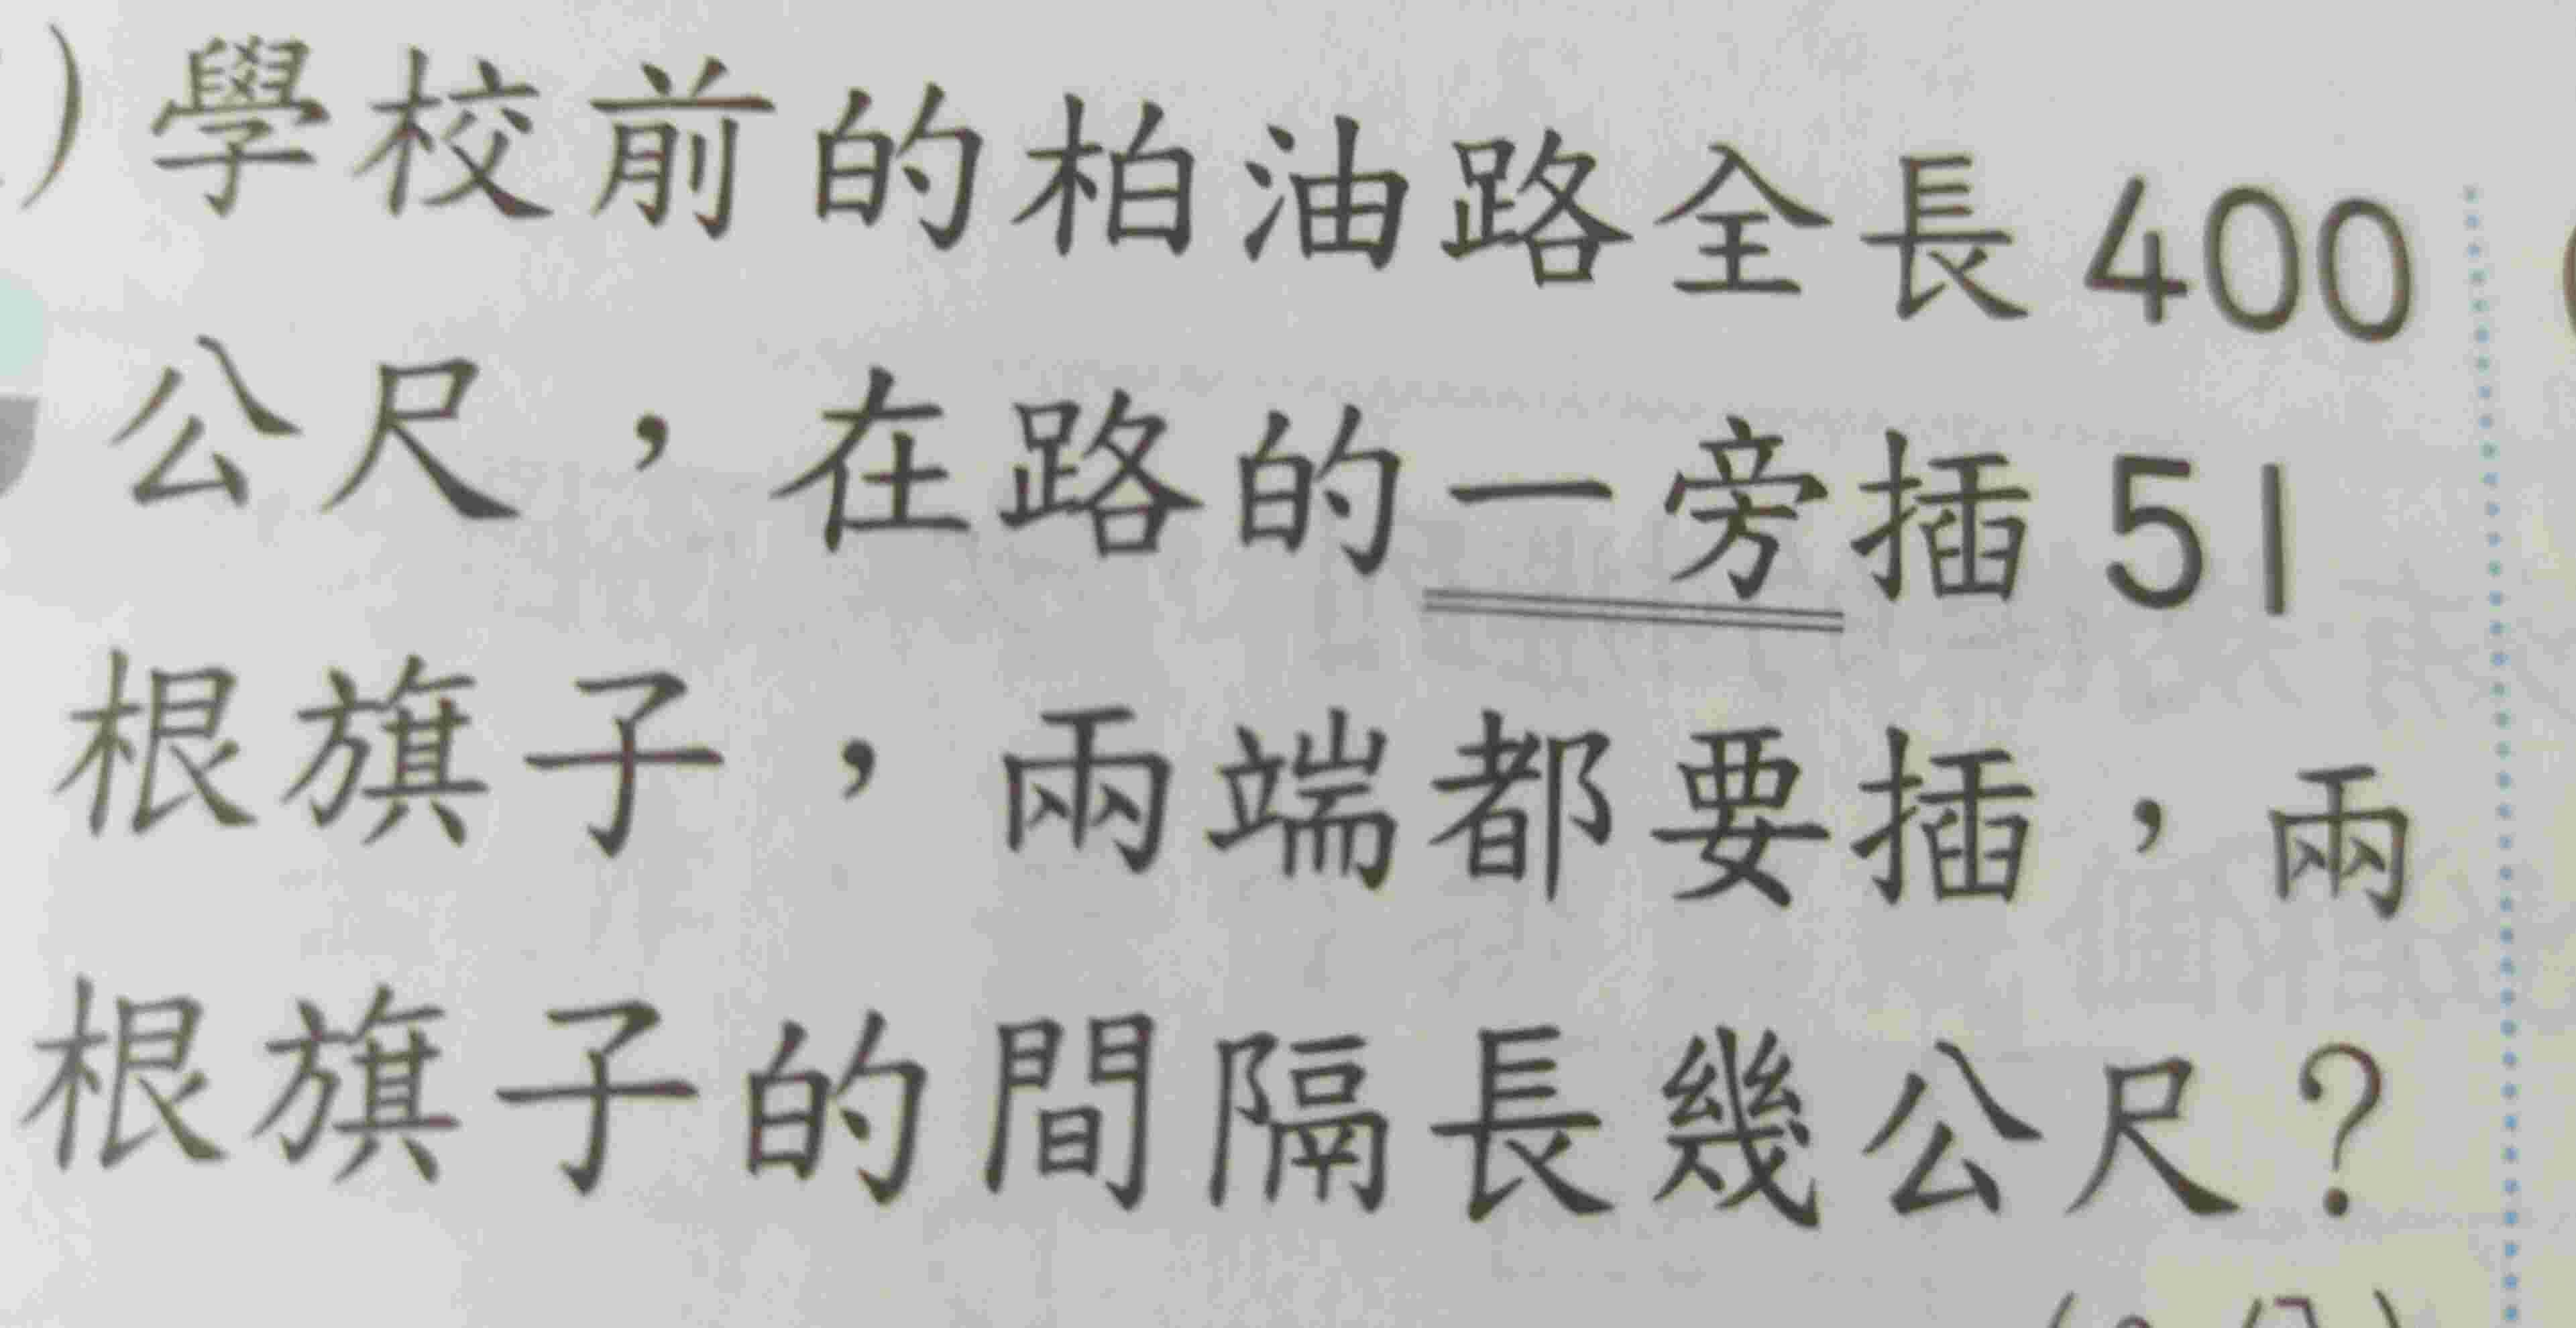 )學校前的柏油路全長400
公尺，在路的一旁插51
根旗子，兩端都要插，兩
根旗子的間隔長幾公尺？